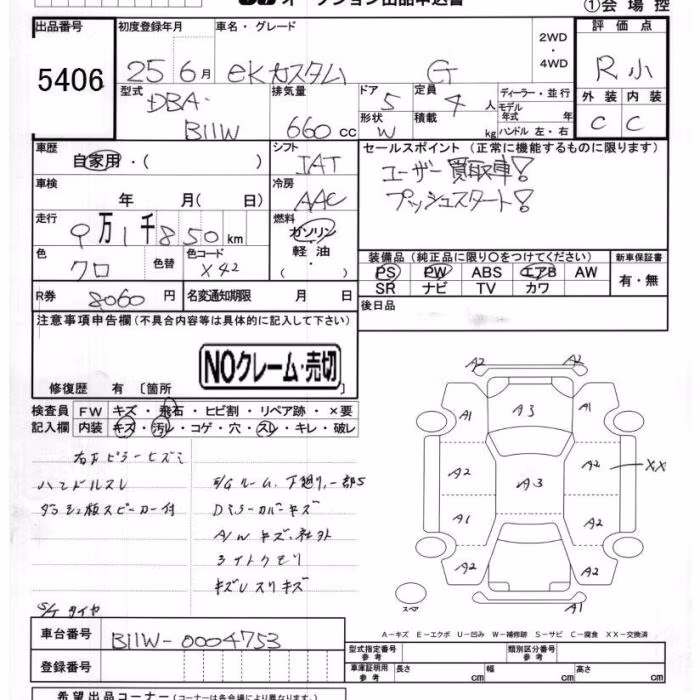 オークション出品申込書
①会場控
出品番号 初度登録年月 車名・グレード 2WD・4WD 評価点
5406 25 6月 eKカスタム G R小
型式 排気量 ドア 定員 ディーラー・並行 外装 内装
DBA-B11W 660cc 5 4人 モデル年式 年 C C
形状 積載
W kg ハンドル 左・右
車歴 シフト セールスポイント(正常に機能するものに限ります)
自家用・( ) IAT ユーザー買取車!
車検 冷房 プッシュスタート!
年 月( 日) AAC
走行 燃料
9万1千850km ガソリン・軽油・
色 色替 色コード 装備品(純正品に限り○をつけてください) 新車保証書
クロ X42 PS PW ABS エアB AW 有・無
SR ナビ TV カワ
R券 8060円 名変通知期限 月 日 後日品
注意事項申告欄(不具合内容等は具体的に記入して下さい)
NOクレーム・売切
修復歴 有〔箇所 〕
検査員 FW キズ・飛石・ヒビ割・リペア跡・×要
記入欄 内装 キズ・汚レ・コゲ・穴・スレ・キレ・破レ
右Bピラーヒズミ
ハンドルスレ
ダッシュ板スピーカー付
E/Gルーム、下廻り、一部S
Dミラーカバーキズ
A/Wキズ、社外
ライトクモリ
キズ
スリキズ
S/Tタイヤ
A2 A2
A1 A3 A1
A2 A3 A2 XX
A1 A2
A2 A2
A1
スペア
A−キズ E−エクボ U−凹み W−補修跡 S−サビ C−腐食 XX−交換済
車台番号 B11W-0004753 型式指定番号 参考 類別区分番号 参考
登録番号 車庫証明用 参考 長さ cm 幅 cm 高さ cm
希望出品コーナー(コーナーは各会場により異なります。)